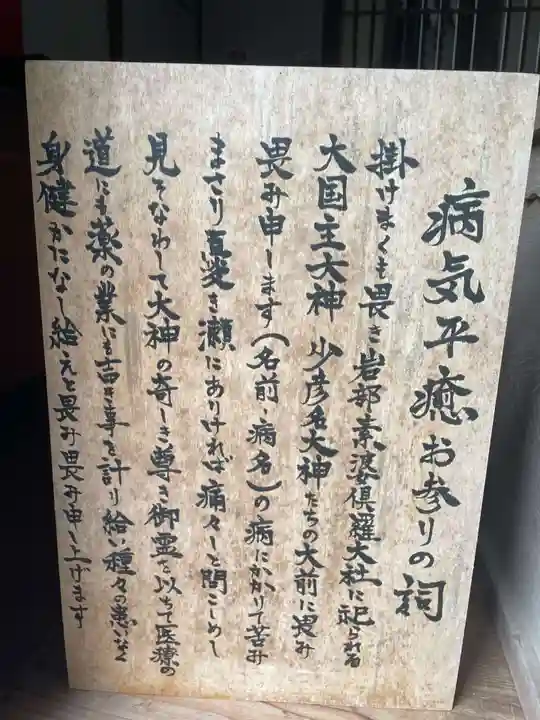 病気平癒お参りの祠
掛けまくも畏き岩部素婆倶羅大社に祀られる
大国主大神 少彦名大神たちの大前に畏み
畏み申します(名前・病名)の病にかかりて苦み
まさり直渂き瀬にありければ痛々しと聞こしめし
見そなわして大神の奇しき尊き御霊を以ちて医療の
道にも薬の業にも吉き事を計り給い種々の患いなく
身健かになし給えと畏み畏み申し上げます